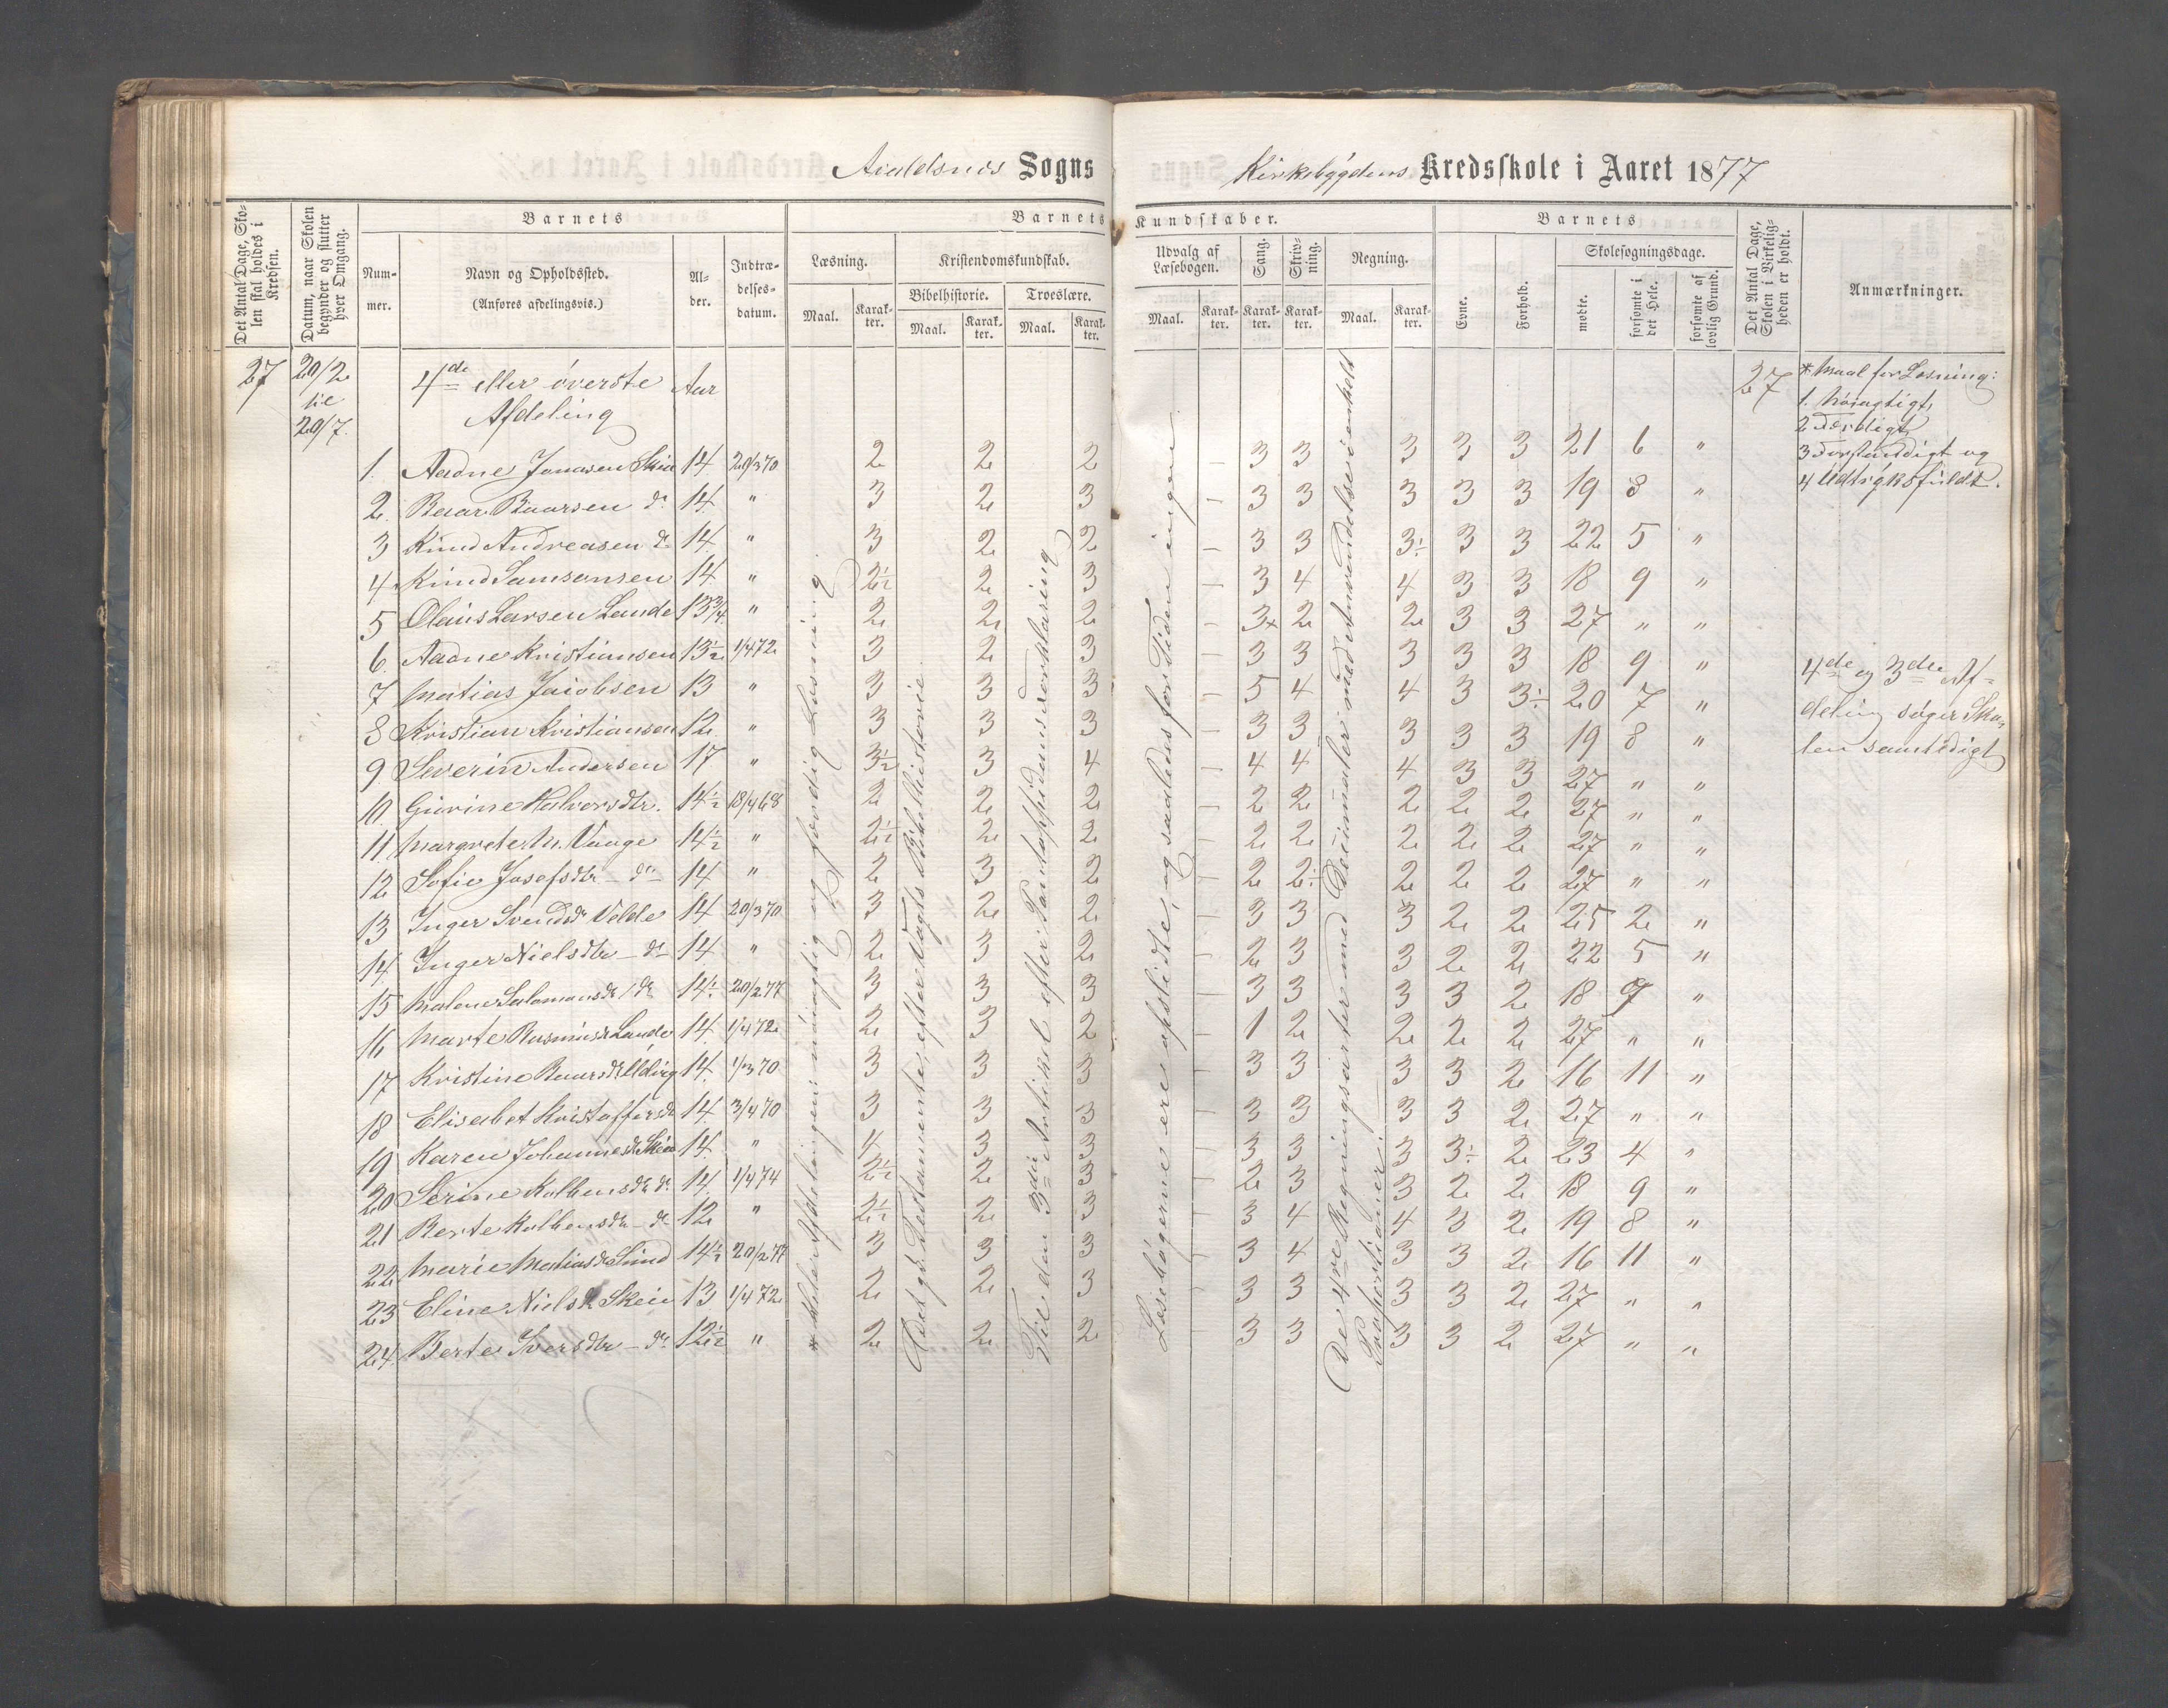 Avaldsnes Sogns
Kirkebygdens Kredsskole i Aaret 1877
Det Antal Dage, Skolen skal holdes i Kredsen.
Datum, naar Skolen begynder og slutter hver Omgang.
Barnets
Nummer.
Navn og Opholdssted.
(Anføres afdelingsvis.)
Alder.
Indtrædelsesdatum.
Barnets
Læsning.
Maal.
Karakter.
Kristendomskundskab.
Bibelhistorie.
Maal.
Karakter.
Troeslære.
Maal.
Karakter.
Kundskaber.
Udvalg af Læsebogen.
Maal.
Karakter.
Sang.
Karakter.
Skrivning.
Karakter.
Regning.
Maal.
Karakter.
Barnets
Evne.
Forhold.
Skolesøgningsdage.
mødte.
forsømte i det Hele.
forsømte af lovlig Grund.
Det Antal Dage, Skolen i Virkeligheden er holdt.
Anmærkninger.
27 20/2 til 20/7. 4de eller øverste Afdeling Aar 27
1. Aadne Jonasen Skeie 14 20/3 70 2 2 2 – 3 3 3 3 3 21 6 "
2. Baar Baarsen do 14. " 3 2 3 – 3 3 3 3 3 19 8 "
3 Knud Andreasen do 14 " 3 2 2 – 3 3 3÷ 3 3 22 5 "
4 Knud Samsonsen 14 " 2½ 2 3 – 3 4 4 3 3 18 9 "
5 Olaus Larsen Lande 13¾ " 2 2 2 – 3x 2 2 3 3 27 " "
6 Aadne Kristiansen 13½ 1/4 72 3 2 3 – 3 3 3 3 3 18 9 "
7 Matias Jacobsen 13 " 3 3 3 – 5 4 4 3 3÷ 20 7 "
8 Kristian Kristiansen 12. " 3 3 3 – 3 3 3 3 3 19 8 "
9 Severin Andersen 17 " 3½ 3 4 – 4 4 4 3 3 27 " "
10. Gurine Halvorsdtr. 14½ 18/4 68 2 2 2 – 2 2 2 2 2 27 " "
11 Margrete M. Vaage 14½ " 2½ 2 2 – 2 2 2 2 2 27 " "
12 Sofie Josefsdtr – do 14 " 2 3 2 – 2 2÷ 2 2 2 27 " "
13 Inger Svendsdr Velde 14 20/3 70 3 2 2 – 3 3 3 2 2 25 2 "
14 Inger Nielsdtr – do 14. " 2 3 2 – 2 3 3 2 2 22 5 "
15 Malene Salomonsdr do 14½ 20/2 77 3 3 3 – 3 3 3 3 2 18 9 "
16 Marte Rasmusdr Lande 14. 1/4 72 2 3 2 – 1 2 2 2 2 27 " "
17 Kristine Baarsdr Utvig 14. 1/3 70 3 3 3 – 3 3 3 3 2 16 11 "
18 Elisabet Kristoffersdr 14. 3/4 70 3 3 3 – 3 3 3 3 2 27 " "
19 Karen Johannesdr Skeie 14. " 4 3 3 – 3 3 3 3÷ 2 23 4 "
20 Serine Kolbensdr do 14 1/4 74 2½ 2 3 – 2 3 3 2 2 18 9 "
21 Berte Kolbensdtr – do 12 " 2½ 2 3 – 3 4 4 3 2 19 8 "
22 Marie Matiasdr Sund 14½ 20/2 77 3 3 3 – 3 4 3 3 2 16 11 "
23 Eline Nielsdr Skeie 13 1/4 72 2 2 3 3 3 3 3 2 27 " "
24 Berte Iversdtr – do 12½ " 2 2 2 3 3 3 3 2 27 " "
* Ældste Afdelingen nøiagtig og færdig Læsning.
Det gl. Testamente efter Vogts Bibelhistorie.
Til den 3die Artikel efter Pontoppidans Forklaring
Læsebøgerne ere opslidte, og saaledes for Tiden ingen
De 4re Regningsarter med Decimaler med Anvendelse i enkelt Proportioner.
* Maal for Læsning:
1. Nøiagtigt,
2 Færdigt,
3 Forstandigt og
4 Udtryksfuldt.
4de og 3die Af-
deling søger Sko-
len samtidigt